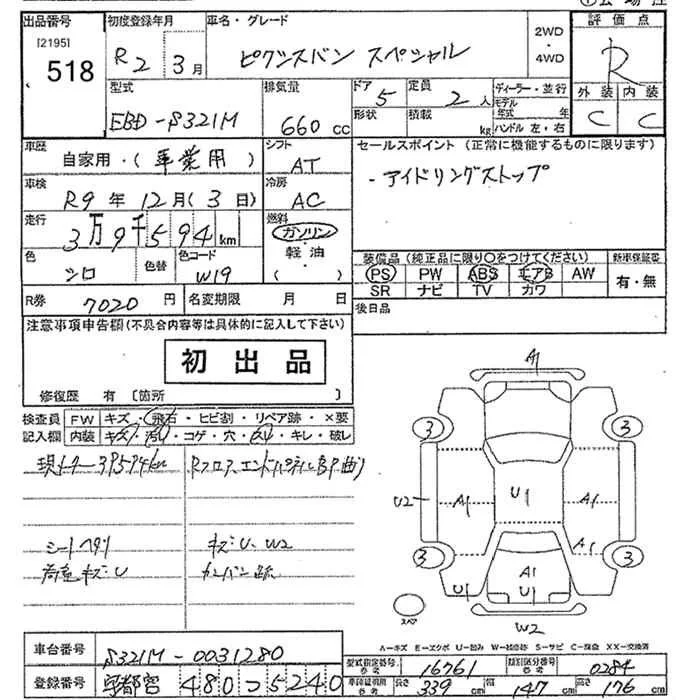 出品番号
[2195]
518
初度登録年月
R2 3月
車名・グレード
ピクシスバン スペシャル
2WD
・
4WD
評価点
R
外装 内装
C C
型式
EBD-S321M
排気量
660 cc
ドア 5
形状
定員 2人
積載 kg
ディーラー・並行
モデル
年式 年
ハンドル 左・右
車歴 自家用・(事業用)
シフト AT
車検 R9年12月(3日)
冷房 AC
走行 3万9千594km
燃料
ガソリン
軽油
( )
色 シロ
色替
色コード W19
セールスポイント (正常に機能するものに限ります)
・アイドリングストップ
装備品 (純正品に限り〇をつけてください)
PS PW ABS エアB AW
SR ナビ TV カワ
新車保証書
有・無
R券 7020円
名変期限 月 日
後日品
注意事項申告欄 (不具合内容等は具体的に記入して下さい)
初出品
修復歴 有 [箇所 ]
検査員
記入欄
FW キズ・飛石・ヒビ割・リペア跡・×要
内装 キズ・汚れ・コゲ・穴・スレ・キレ・破レ
現メーター 39594km
Rフロア、エンドパネルBP曲り
シートヘタリ
キズU、W2
荷室キズU
カンバン跡
A1
3 3
U2 A1 U1 A1
3 3
A1
U1 A1 U1
スペア
W2
A-キズ E-エクボ U-凹み W-補修跡 S-サビ C-腐食 XX-交換済
車台番号 S321M-0031280
登録番号 宇都宮 480 つ 5240
型式指定番号
参考
16761
類別区分番号
参考
0284
車両証明用
参考
長さ 339cm
幅 147cm
高さ 176cm